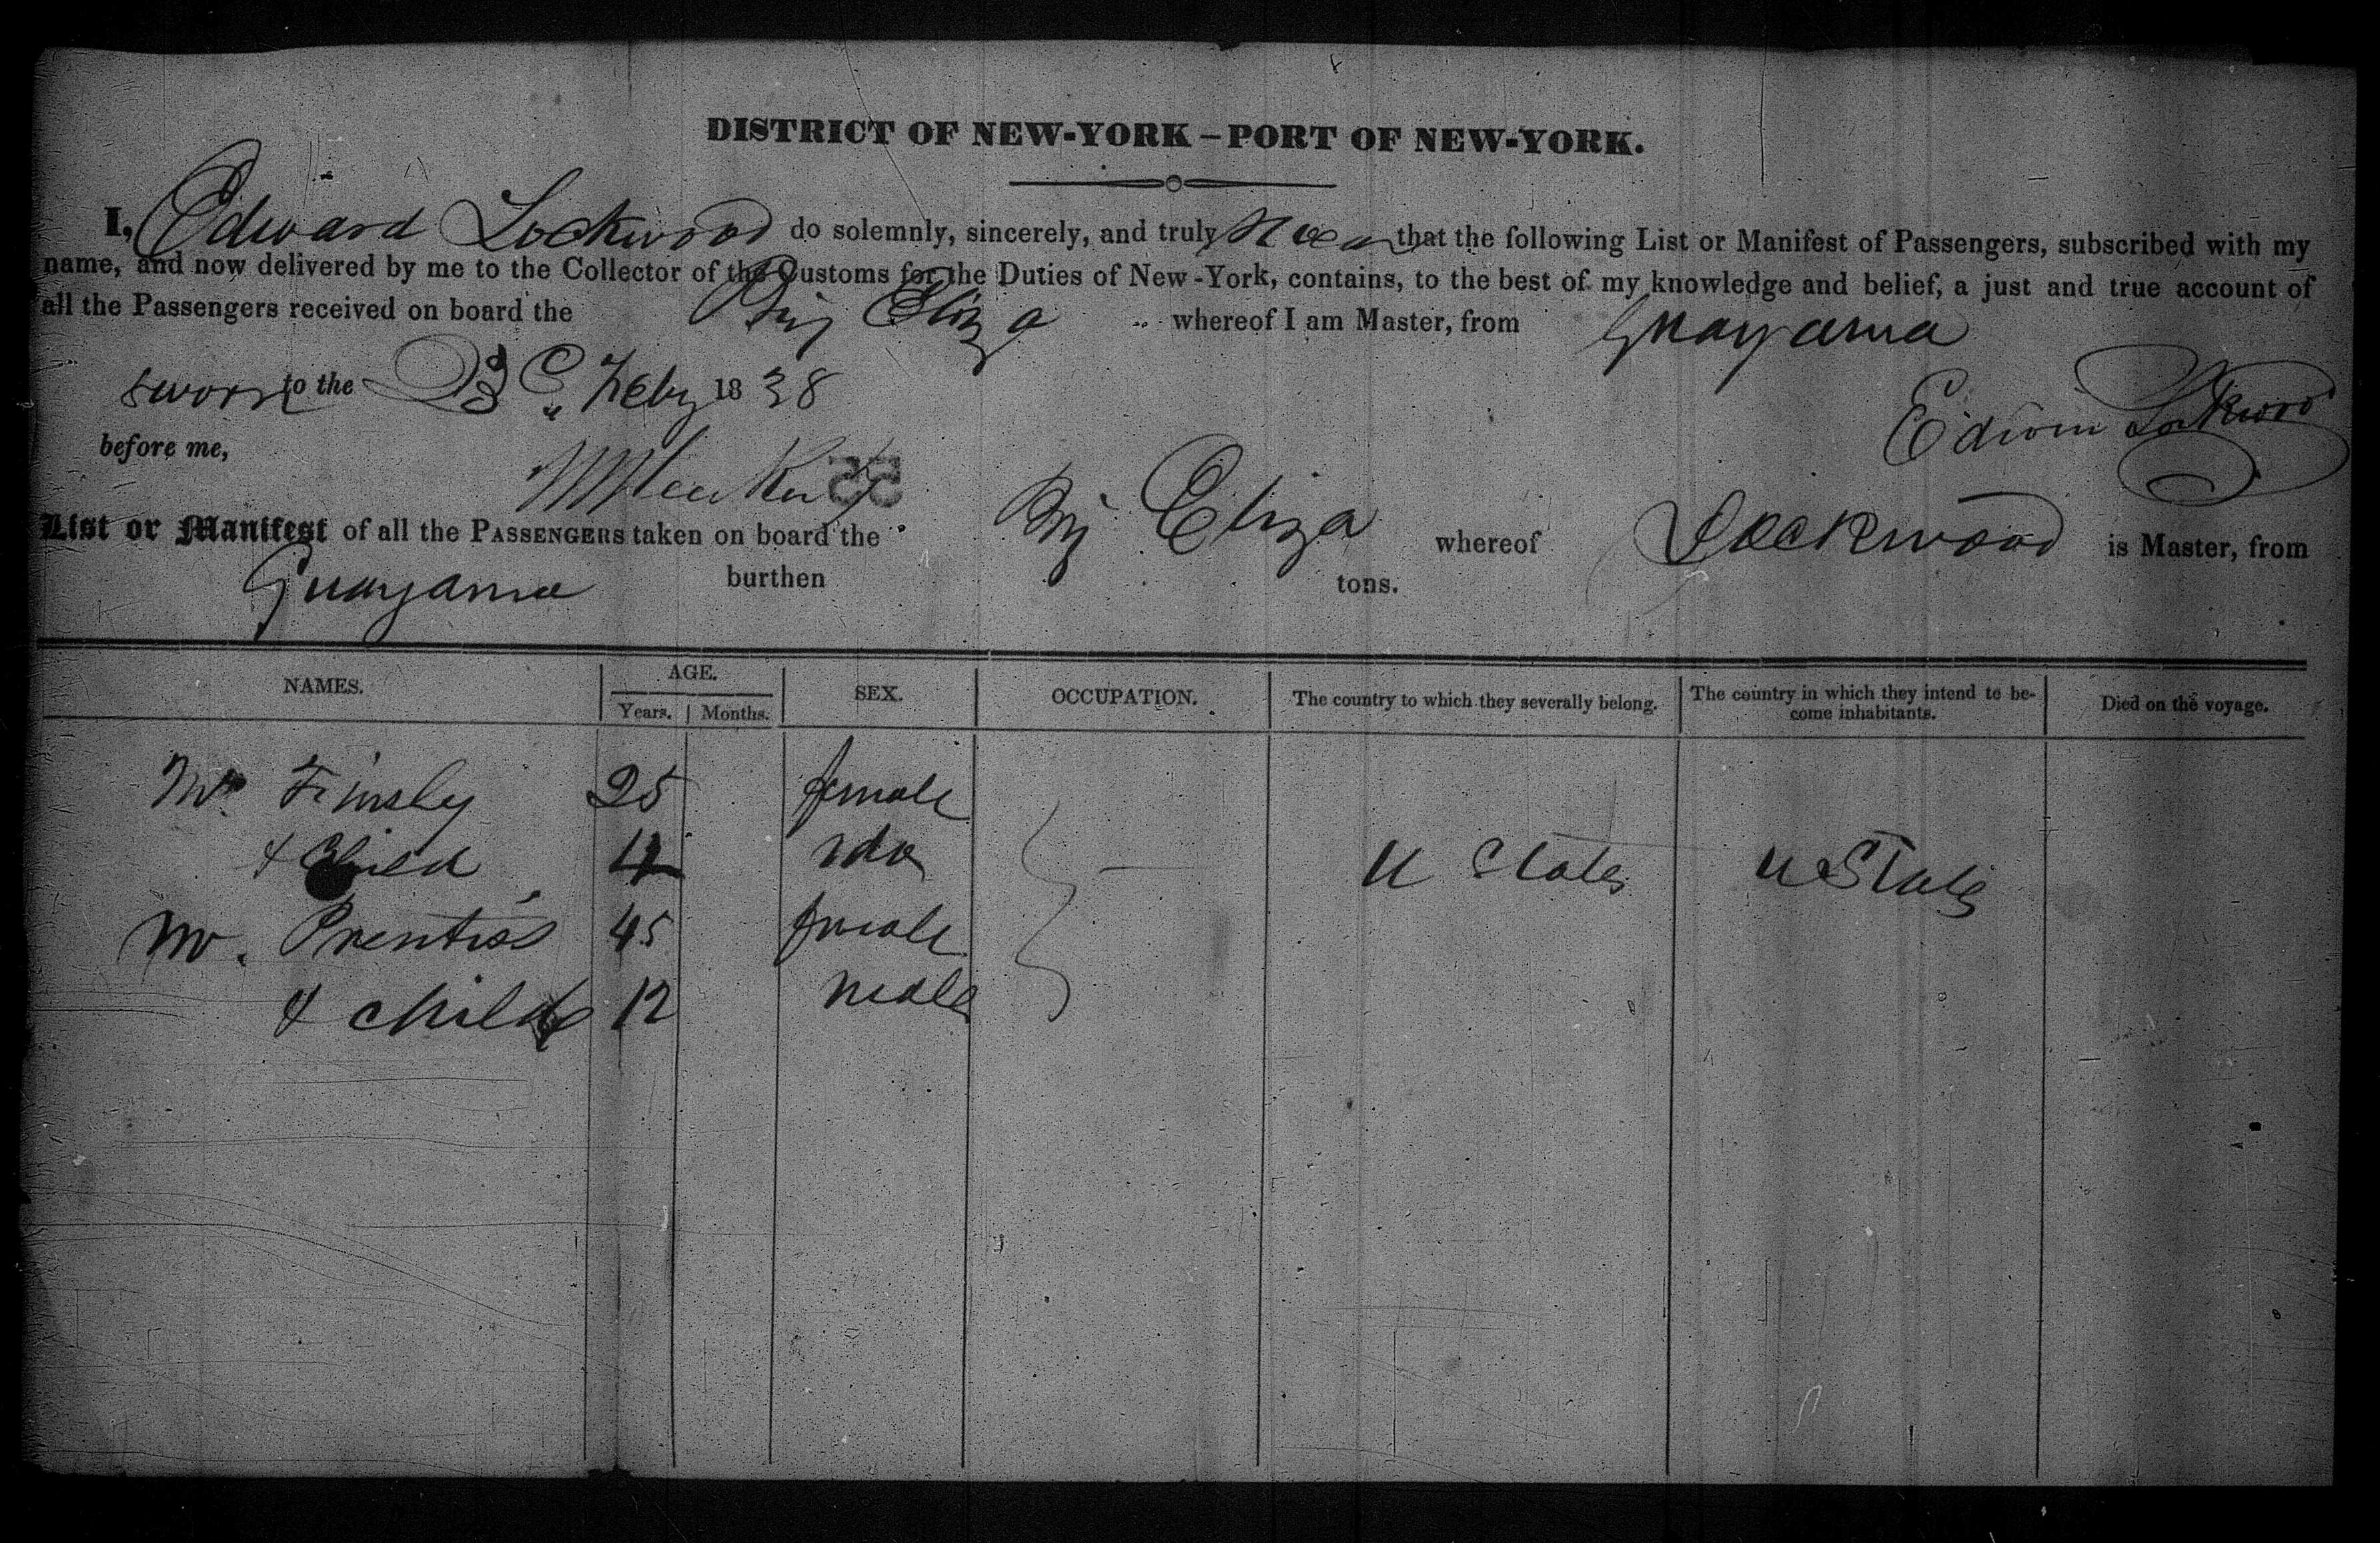 DISTRICT OF NEW-YORK – PORT OF NEW-YORK.
I, Edward Lockwood do solemnly, sincerely, and truly swear that the following List or Manifest of Passengers, subscribed with my
name, and now delivered by me to the Collector of the Customs for the Duties of New-York, contains, to the best of my knowledge and belief, a just and true account of
all the Passengers received on board the Brig Eliza whereof I am Master, from Guayama
sworn to the 23d Feby 1838
Edwin Lockwood
before me,
55
List or Manifest of all the PASSENGERS taken on board the Brig Eliza whereof Lockwood is Master, from
Guayama burthen tons.
NAMES. AGE. Years. Months. SEX. OCCUPATION. The country to which they severally belong. The country in which they intend to become inhabitants. Died on the voyage.
Mrs Tinsley 25 female
& Child 4 do U States U States
Mrs. Prentiss 45 female
& child 12 male